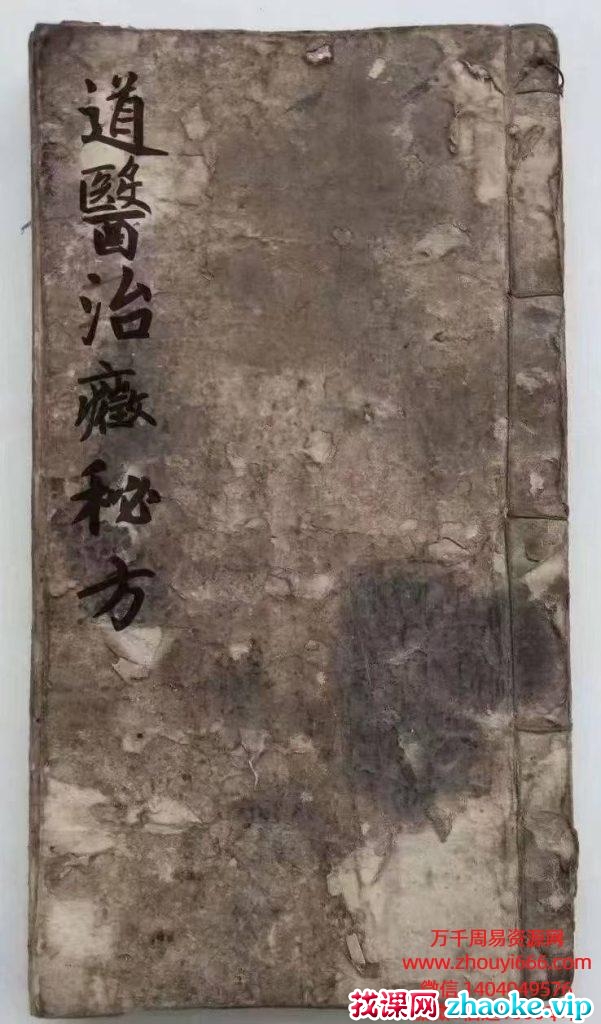 道醫治癥秘方
万千周易资源网
www.zhouyi666.com
微信 1404049576
找课网 zhaoke.vip